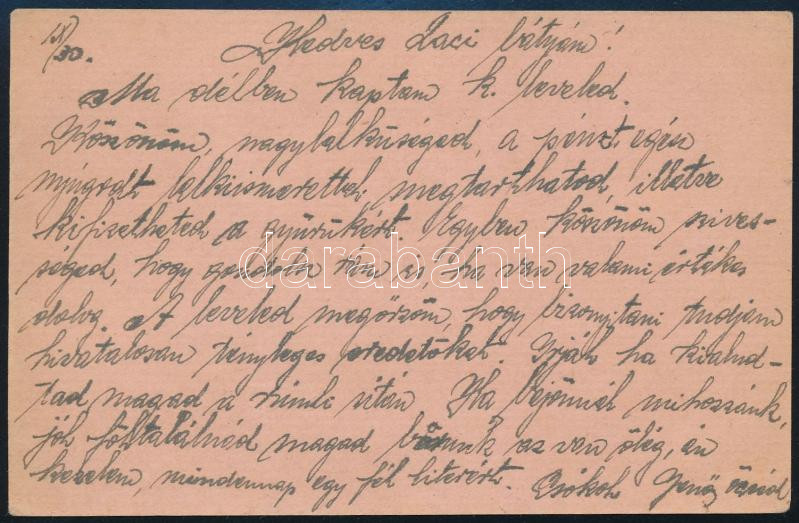 IX/30.
Kedves Laci bátyám!
Ma délben kaptam k. leveled.
Köszönöm, nagylelkűséged, a pénzt egész
nyugodt lelkiismerettel megtarthatod, illetve
kifizetheted a gyűrűkért. Egyben köszönöm szíves-
séged, hogy gondolsz rám is, ha van valami értékes
dolog. A leveled megőrzöm, hogy bizonyítani tudjam
hivatalosan tényleges eredetöket. Irjál ha kialud-
tad magad a után. Ha bejönnél mihozzánk,
jól föltalálnád magad van elég, én
kezelem, mindennap egy fél literért. Csókol Jenő öcséd
darabanth